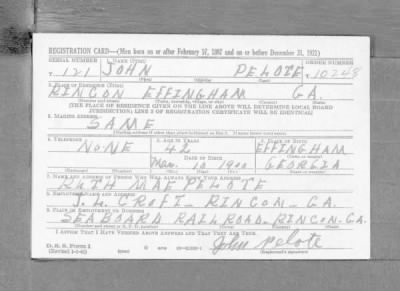 REGISTRATION CARD—(Men born on or after February 17, 1897 and on or before December 31, 1921)
SERIAL NUMBER 1. NAME (Print) ORDER NUMBER
T 121 JOHN PELOTE T10248
(First) (Middle) (Last)
2. PLACE OF RESIDENCE (Print)
RINCON EFFINGHAM GA.
(Number and street) (Town, township, village, or city) (County) (State)
[THE PLACE OF RESIDENCE GIVEN ON THE LINE ABOVE WILL DETERMINE LOCAL BOARD
JURISDICTION; LINE 2 OF REGISTRATION CERTIFICATE WILL BE IDENTICAL]
3. MAILING ADDRESS
SAME
(Mailing address if other than place indicated on line 2. If same insert word same)
4. TELEPHONE 5. AGE IN YEARS 6. PLACE OF BIRTH
NONE 42 EFFINGHAM
DATE OF BIRTH (Town or county)
Mar. 10 1900 GEORGIA
(Exchange) (Number) (Mo.) (Day) (Yr.) (State or country)
7. NAME AND ADDRESS OF PERSON WHO WILL ALWAYS KNOW YOUR ADDRESS
RUTH MAE PELOTE
8. EMPLOYER'S NAME AND ADDRESS
J. L. CROFT - RINCON - GA.
9. PLACE OF EMPLOYMENT OR BUSINESS
SEABOARD RAILROAD - RINCON - GA.
(Number and street or R. F. D. number) (Town) (County) (State)
I AFFIRM THAT I HAVE VERIFIED ABOVE ANSWERS AND THAT THEY ARE TRUE.
D. S. S. Form 1
John Pelote
(Registrant's signature)